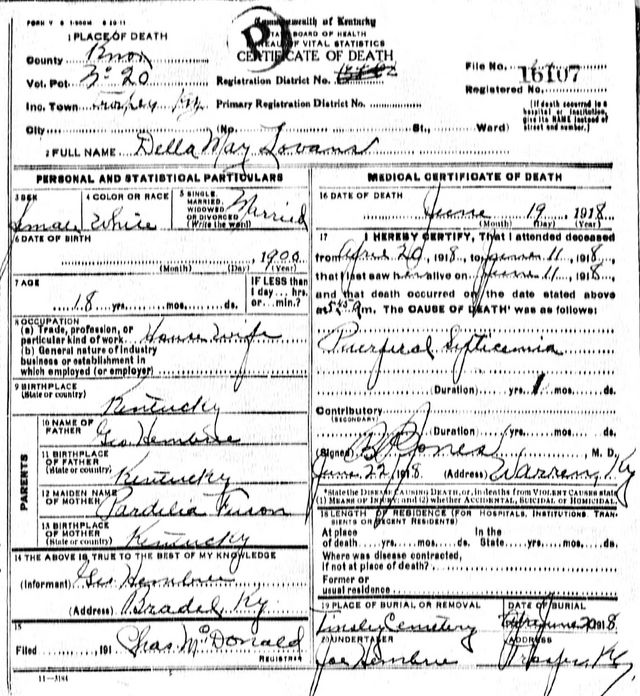 FORM V S 1-500M 6 10 11
Commonwealth of Kentucky
STATE BOARD OF HEALTH
BUREAU OF VITAL STATISTICS
CERTIFICATE OF DEATH
1 PLACE OF DEATH
County Knox
Vot. Pct. No 20
Inc. Town Ky
City (No. St., Ward)
Registration District No.
Primary Registration District No.
File No.
16107
Registered No.
(If death occurred in a hospital or institution, give its NAME instead of street and number.)
2 FULL NAME Della May Lovans
PERSONAL AND STATISTICAL PARTICULARS
3 SEX
Female
4 COLOR OR RACE
White
5 SINGLE, MARRIED, WIDOWED OR DIVORCED (Write the word)
Married
6 DATE OF BIRTH
, 1900
(Month) (Day) (Year)
7 AGE
18 yrs. mos. ds.
IF LESS than 1 day... hrs. or... min.?
8 OCCUPATION
(a) Trade, profession, or particular kind of work House wife
(b) General nature of industry business or establishment in which employed (or employer)
9 BIRTHPLACE
(State or country)
Kentucky
PARENTS
10 NAME OF FATHER
Geo Hembree
11 BIRTHPLACE OF FATHER (State or country)
Kentucky
12 MAIDEN NAME OF MOTHER
Pardelia Fuson
13 BIRTHPLACE OF MOTHER (State or country)
Kentucky
14 THE ABOVE IS TRUE TO THE BEST OF MY KNOWLEDGE
(Informant) Geo Hembree
(Address) Ky
15
Filed , 191 Chas McDonald
REGISTRAR
11-3184
MEDICAL CERTIFICATE OF DEATH
16 DATE OF DEATH
June 19 1918
(Month) (Day) (Year)
17 I HEREBY CERTIFY, That I attended deceased
from April 20, 1918, to June 11, 1918,
that I last saw her alive on June 11, 1918,
and that death occurred on the date stated above
at m. The CAUSE OF DEATH* was as follows:
Puerperal Septicemia
(Duration) yrs. 1 mos. ds.
Contributory
(SECONDARY)
(Duration) yrs. mos. ds.
(Signed) B Jones, M. D.
June 22, 1918 (Address) Warren, Ky
*State the DISEASE CAUSING DEATH, or, in deaths from VIOLENT CAUSES state (1) MEANS OF INJURY; and (2) whether ACCIDENTAL, SUICIDAL or HOMICIDAL.
18 LENGTH OF RESIDENCE (FOR HOSPITALS, INSTITUTIONS, TRANSIENTS OR RECENT RESIDENTS)
At place of death yrs. mos. ds. In the State yrs. mos. ds.
Where was disease contracted, if not at place of death?
Former or usual residence
19 PLACE OF BURIAL OR REMOVAL
Tinsley Cemetery
DATE OF BURIAL
June 20 1918
20 UNDERTAKER
Joe Hembree
ADDRESS
Ky